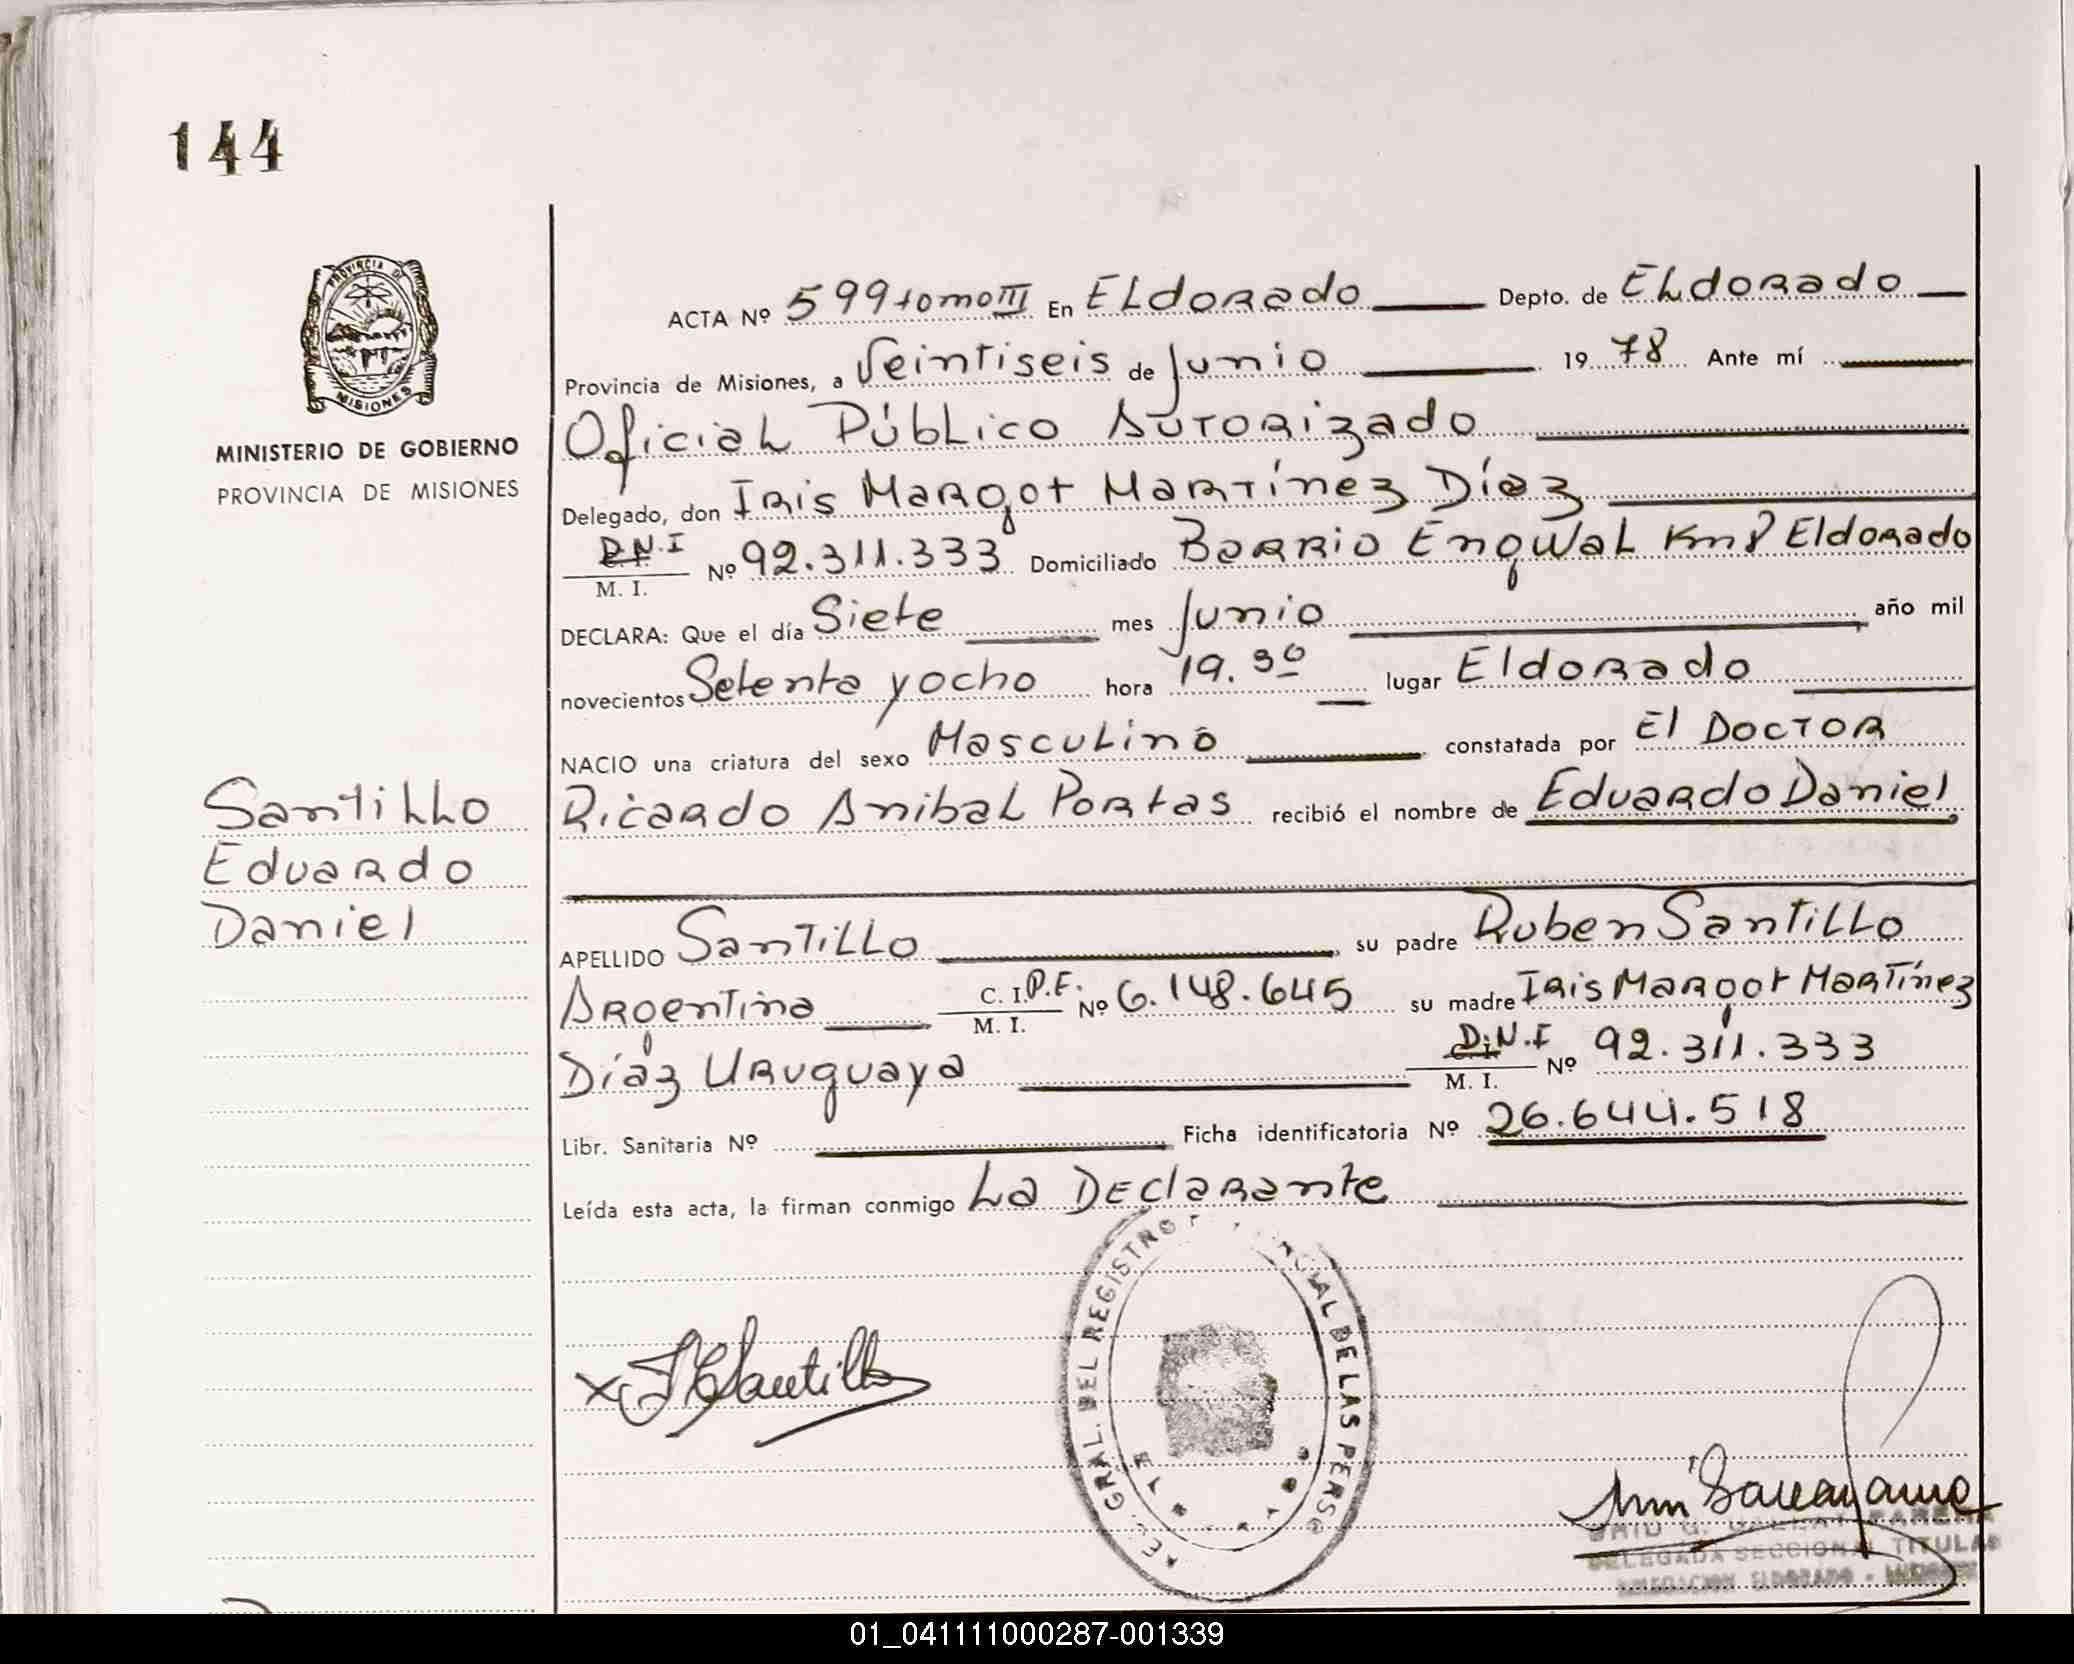 144
PROVINCIA DE
MISIONES
MINISTERIO DE GOBIERNO
PROVINCIA DE MISIONES
Santillo
Eduardo
Daniel
ACTA Nº 599 tomo III En Eldorado Depto. de Eldorado
Provincia de Misiones, a Veintiseis de Junio 19 78 Ante mí
Oficial Público Autorizado
Delegado, don Iris Margot Martínez Díaz
D.N.I
M. I. Nº 92.311.333 Domiciliado Barrio Enqwal Km 8 Eldorado
DECLARA: Que el día Siete mes Junio año mil
novecientos Setenta y ocho hora 19.30 lugar Eldorado
NACIO una criatura del sexo Masculino constatada por El Doctor
Ricardo Anibal Portas recibió el nombre de Eduardo Daniel
APELLIDO Santillo su padre Ruben Santillo
Argentina C. I. P.F. M. I. Nº 6.148.645 su madre Iris Margot Martínez
Díaz Uruguaya D.N.I M. I. Nº 92.311.333
Libr. Sanitaria Nº Ficha identificatoria Nº 26.644.518
Leída esta acta, la firman conmigo La Declarante
GRAL. DEL REGISTRO DE LAS PERSO
Santillo
DELEGADA SECCIONAL TITULAR
DELEGACION ELDORADO -
01_041111000287-001339